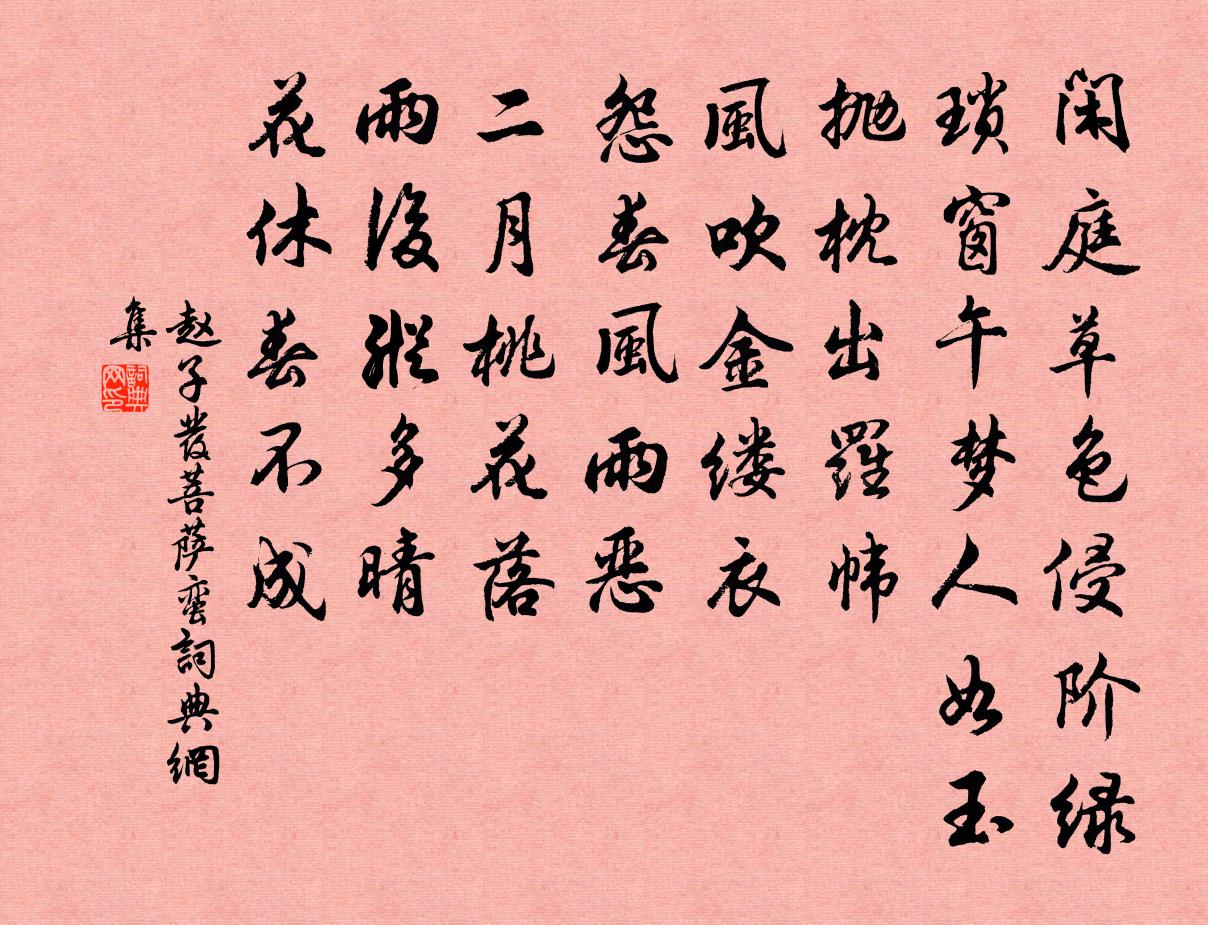 閑庭草色侵阶绿
瑣窗午梦人如玉
抛枕出羅帏
風吹金缕衣
怨春風雨恶
二月桃花落
雨後縱多晴
花休春不成
赵子發菩萨蛮詞典網
集
詞典網印